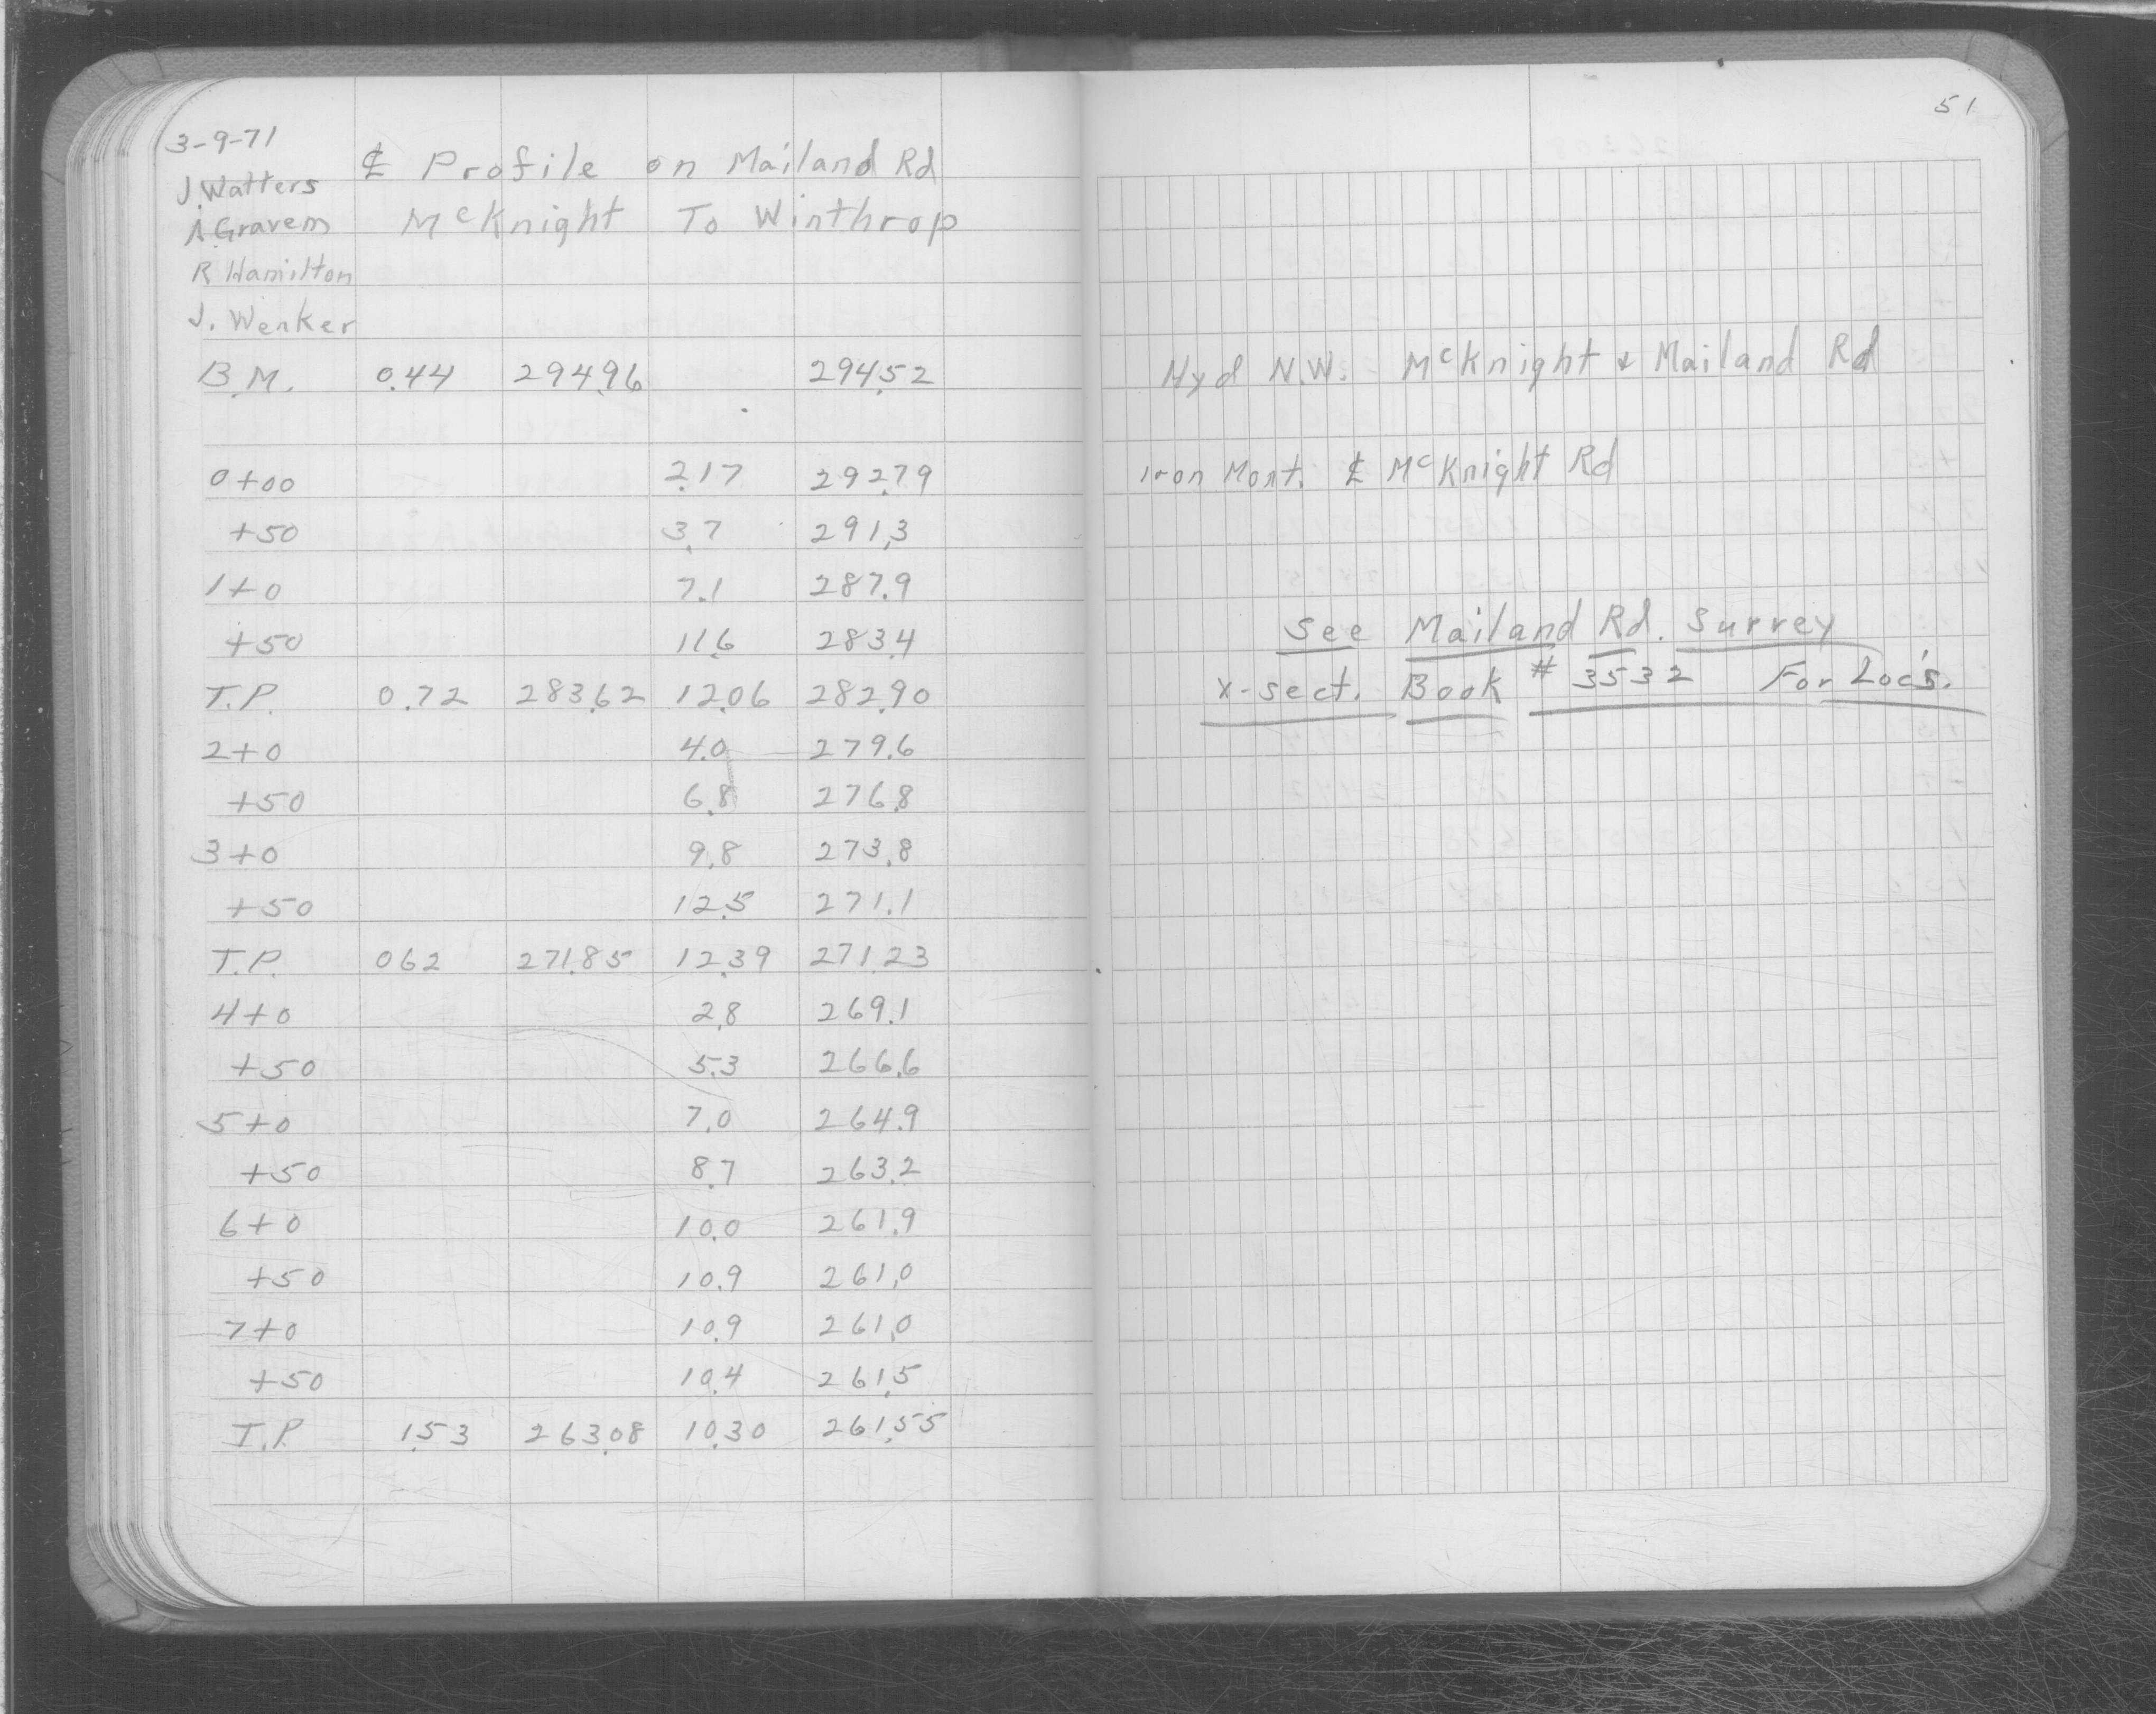 51
3-9-71
℄ Profile on Mailand Rd
J. Watters
McKnight To Winthrop
A. Gravem
R Hamilton
J. Wenker
B.M. 0.44 294.96 294.52 Hyd N.W. McKnight & Mailand Rd
0+00 2.17 292.79 Iron Mont. ℄ McKnight Rd
+50 3.7 291.3
1+0 7.1 287.9
+50 11.6 283.4 See Mailand Rd. Survey
T.P. 0.72 283.62 12.06 282.90 x-sect. Book # 3532 For Loc's.
2+0 4.0 279.6
+50 6.8 276.8
3+0 9.8 273.8
+50 12.5 271.1
T.P. 0.62 271.85 12.39 271.23
4+0 2.8 269.1
+50 5.3 266.6
5+0 7.0 264.9
+50 8.7 263.2
6+0 10.0 261.9
+50 10.9 261.0
7+0 10.9 261.0
+50 10.4 261.5
T.P. 1.53 263.08 10.30 261.55